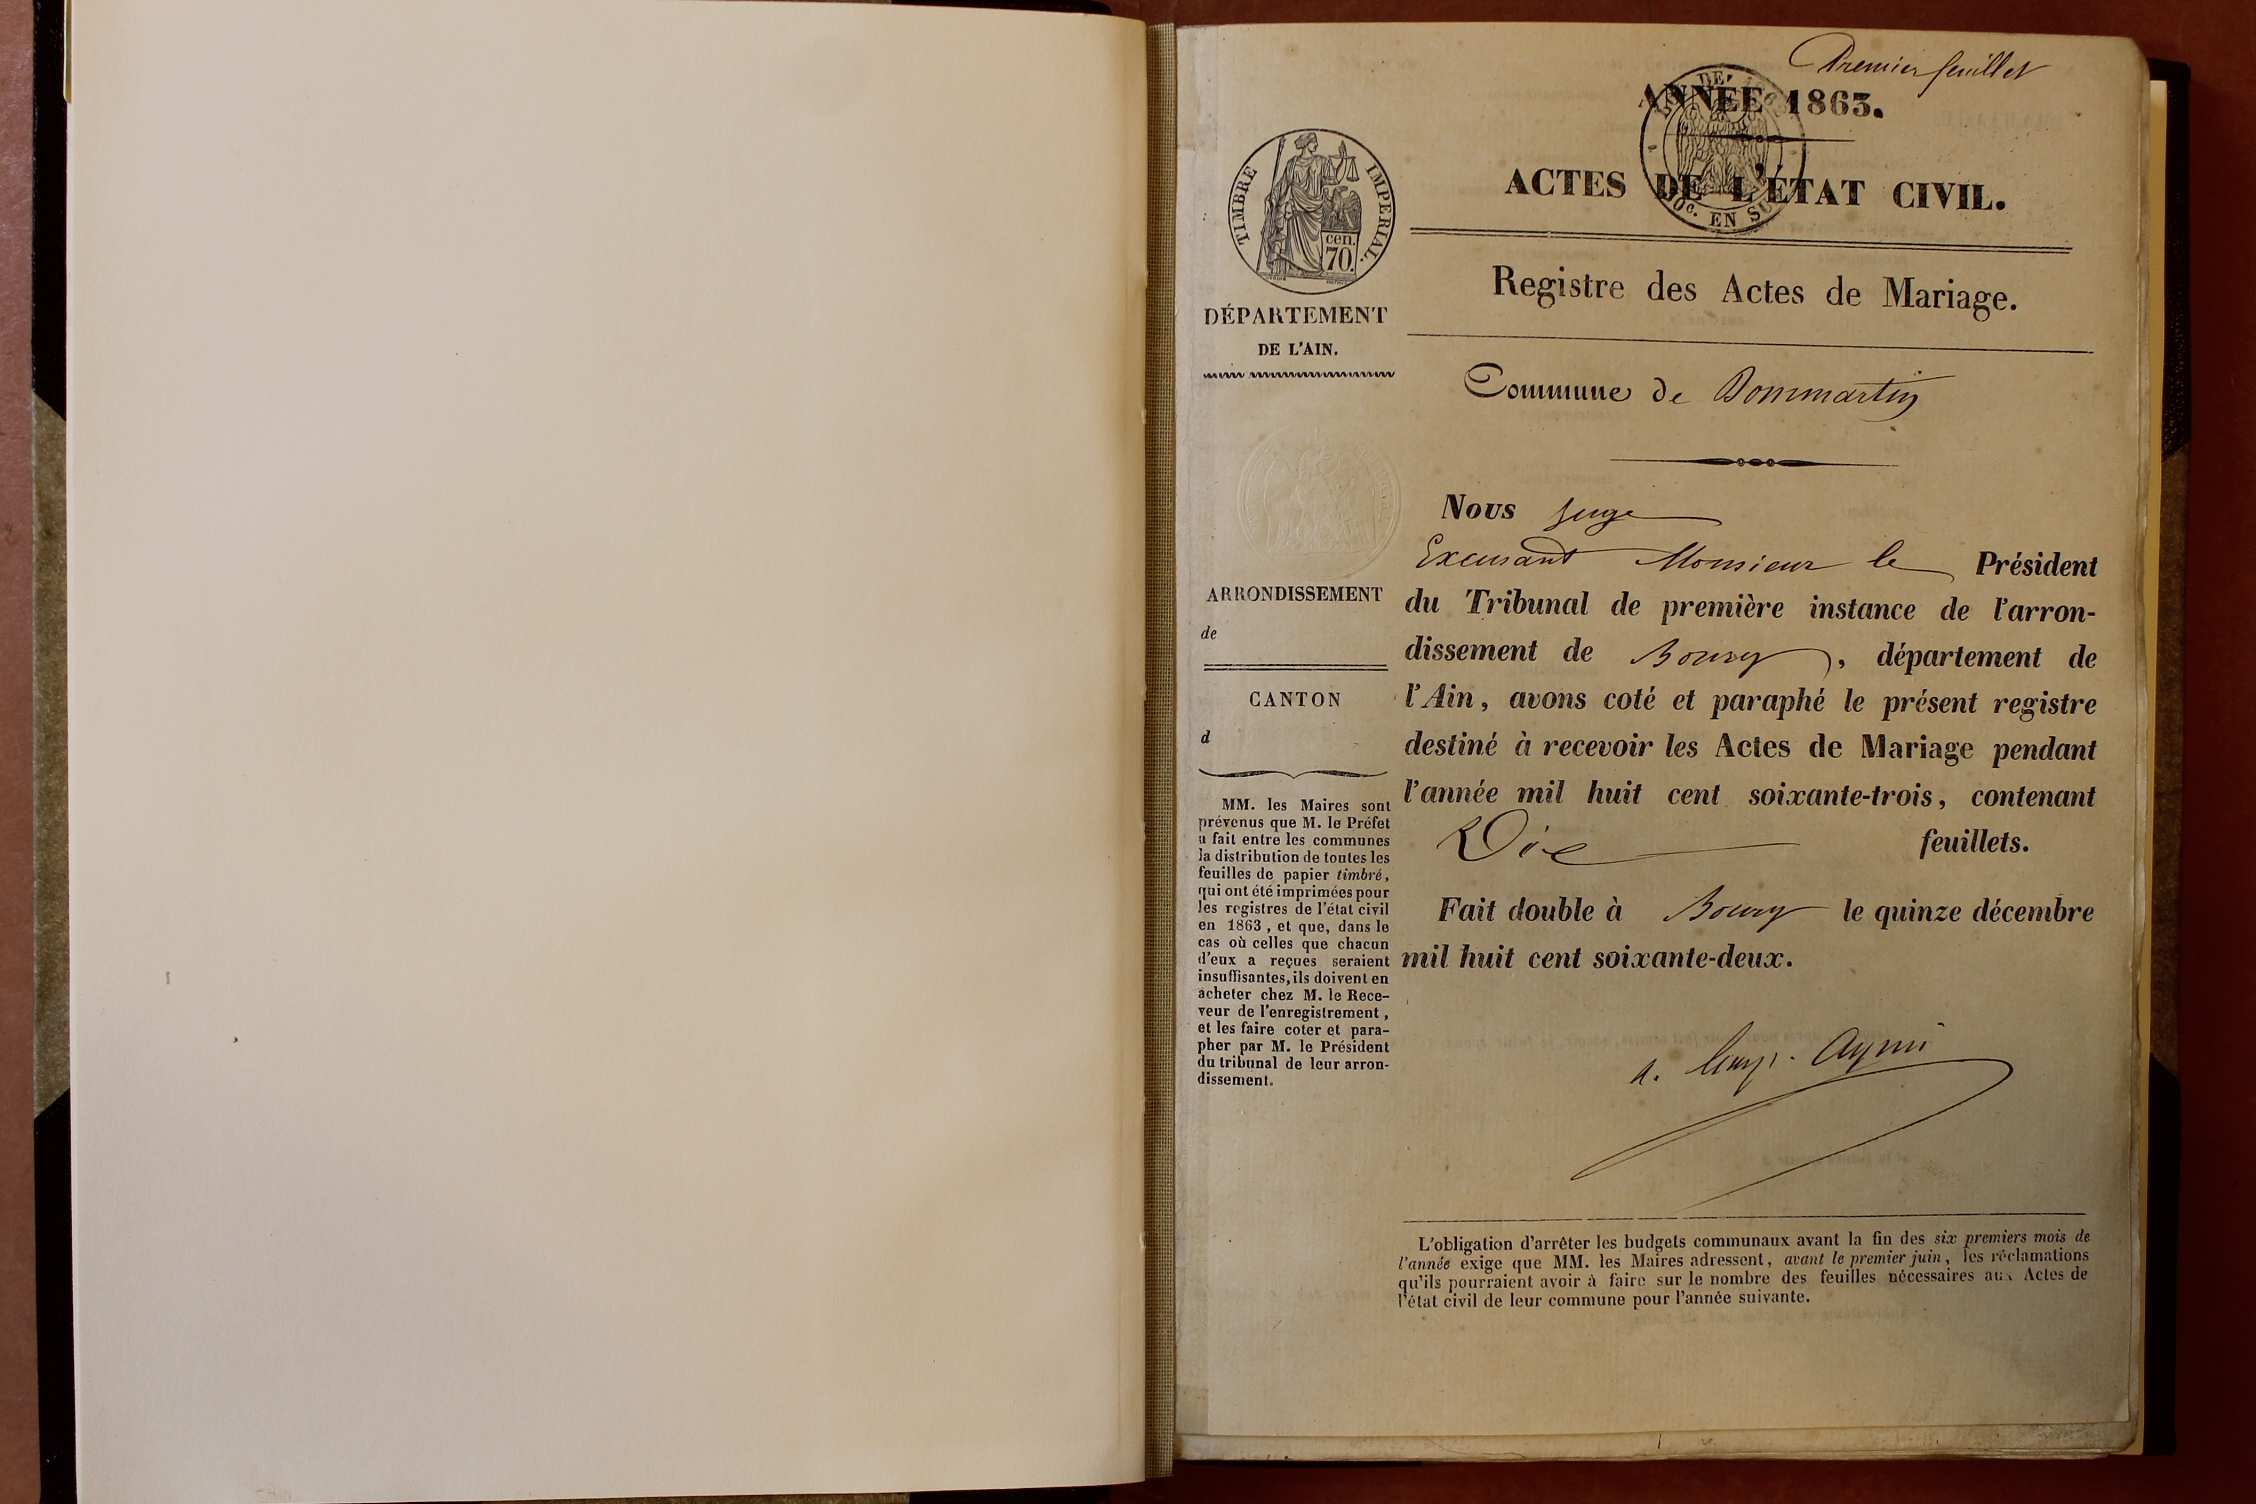 Premier feuillet
ANNÉE 1863.
ACTES DE L'ÉTAT CIVIL.
DE
10c. EN SU
TIMBRE IMPERIAL.
cen.
70.
DÉPARTEMENT
DE L'AIN.
Registre des Actes de Mariage.
Commune de Dommartin
Nous juge
Excusant Monsieur le Président
du Tribunal de première instance de l'arron-
dissement de Bourg, département de
l'Ain, avons coté et paraphé le présent registre
destiné à recevoir les Actes de Mariage pendant
l'année mil huit cent soixante-trois, contenant
Dix feuillets.
Fait double à Bourg le quinze décembre
mil huit cent soixante-deux.
ARRONDISSEMENT
de
CANTON
d
MM. les Maires sont
prévenus que M. le Préfet
a fait entre les communes
la distribution de toutes les
feuilles de papier timbré,
qui ont été imprimées pour
les registres de l'état civil
en 1863, et que, dans le
cas où celles que chacun
d'eux a reçues seraient
insuffisantes, ils doivent en
acheter chez M. le Rece-
veur de l'enregistrement,
et les faire coter et para-
pher par M. le Président
du tribunal de leur arron-
dissement.
L'obligation d'arrêter les budgets communaux avant la fin des six premiers mois de
l'année exige que MM. les Maires adressent, avant le premier juin, les réclamations
qu'ils pourraient avoir à faire sur le nombre des feuilles nécessaires aux Actes de
l'état civil de leur commune pour l'année suivante.